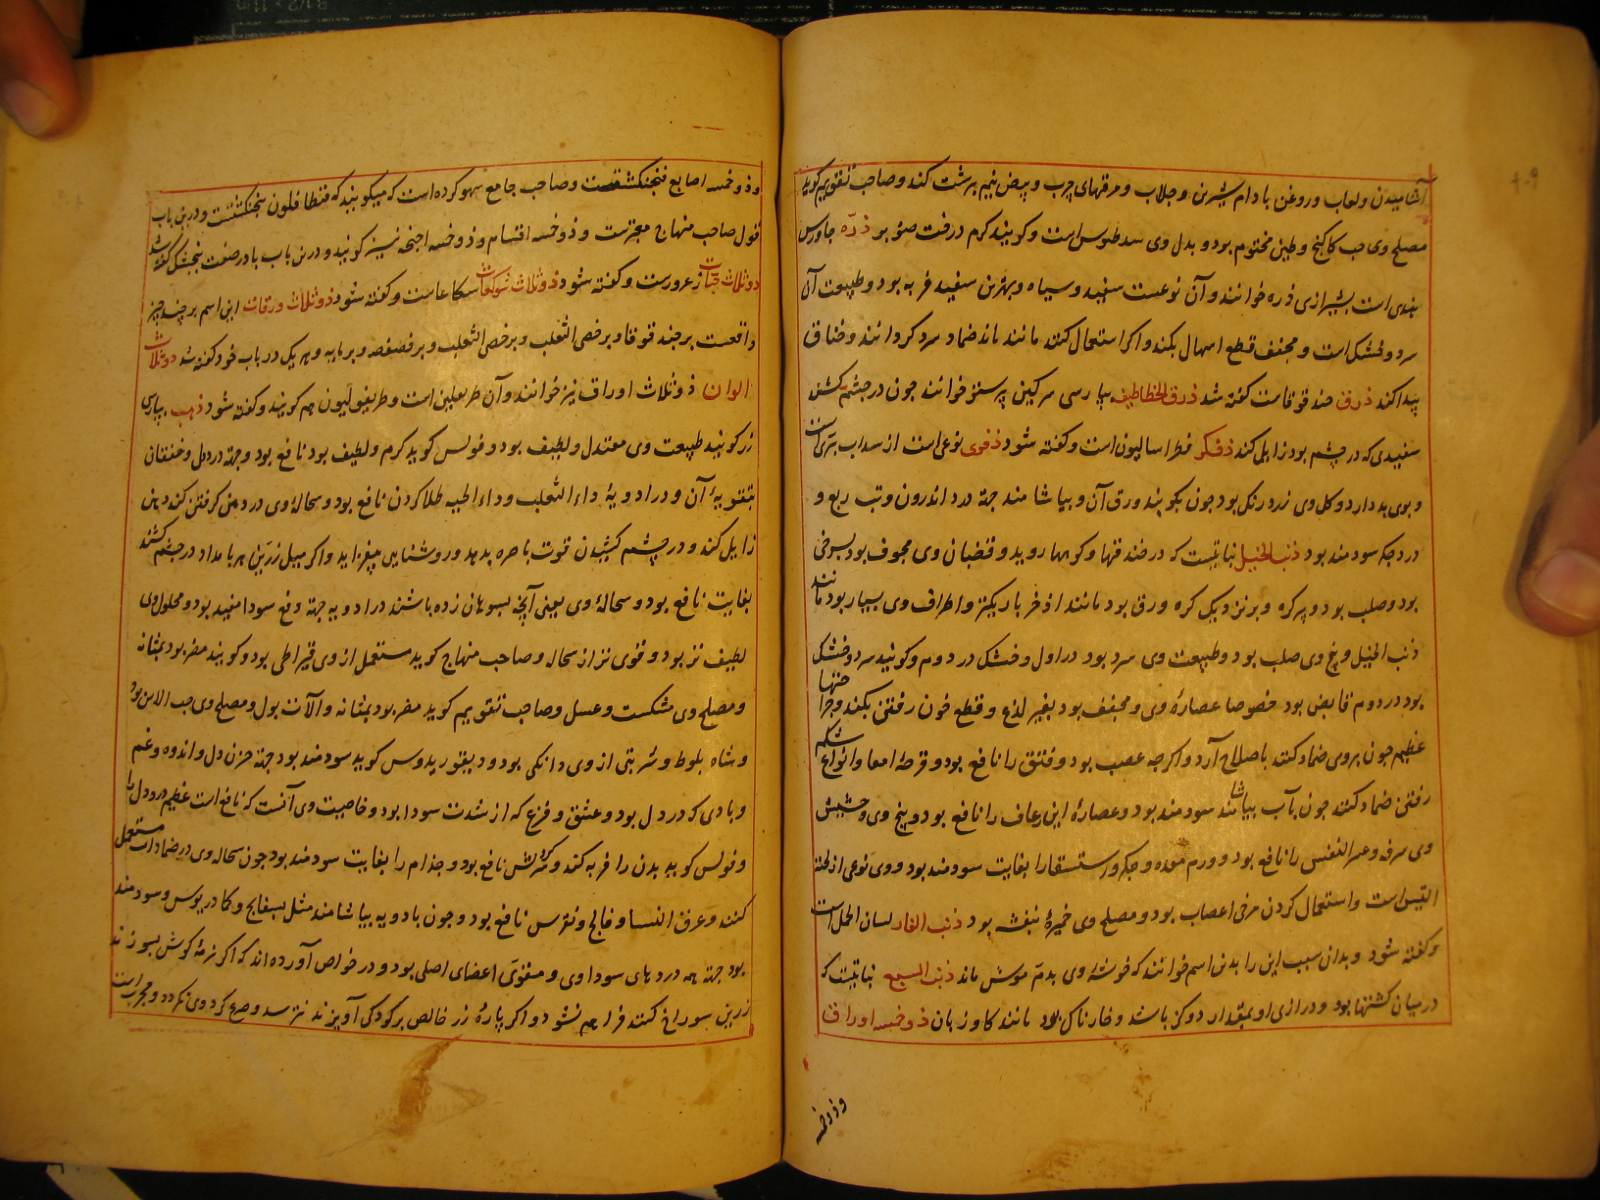 آشامیدن و لعاب و روغن بادام شیرین و جلاب و مرقهای چرب و بیض نیم برشت کند و صاحب تقویم کوید
مصلح وی حب کاکنج و طین مختوم بود و بدل وی سدطوس است و کویند کرم درفت صنوبر ذرّه جاورس
هندی است بشیرازی ذره خوانند و آن نوعست سپید و سیاه و بهترین سفید فربه بود و طبیعت آن
سرد و خشک است و مجفف قطع اسهال بکند و اکر استعمال کنند مانند ضماد سرد کرداند و خناق
پیدا کند ذرق حندقوقاست کفته شد ذرق الخطاطیف بپارسی سرکین پرستو خوانند چون در چشم کشند
سفیدی که در چشم بود زایل کند ذفکر فطراسالیون است و کفته شود ذفوی نوعی است از سداب بری است
و بوی بد دارد و کل وی زرد رنک بود چون بکوبند ورق آن و بیاشامند جهة درد اندرون و تب ربع و
درد جکر سودمند بود ذنب الخیل نباتیست که در خندقها و کوهها روید و قضبان وی مجوف بود بسرخی
بود و صلب بود و پر کره و بر نزدیک کره ورق بود مانند اذخر باریکتر و اطراف وی بسیار بود مانند
ذنب الخیل و بیخ وی صلب بود و طبیعت وی سرد بود در اول و خشک در دوم و کویند سرد و خشک
بود در دوم قابض بود خصوصا عصارهٔ وی و مجفف بود بغیر لذع و قطع خون رفتن بکند و جراحتها
عظیم چون بر وی ضماد کنند باصلاح آرد و اکرچه عصب بود و فتق را نافع بود و قرحهٔ امعا و انواع شکم
رفتن ضماد کنند چون بآب بیاشامند سودمند بود و عصارهٔ این رعاف را نافع بود و بیخ وی و حشیش
وی سرفه و عسر النفس را نافع بود و ورم معده و جکر و استسقا را بغایت سودمند بود و وی نوعی از لحیة
التیس است و استعمال کردن مرخی اعصاب بود و مصلح وی خمیرهٔ بنفشه بود ذنب الفار لسان الحمل است
و کفته شود و بدان سبب این را بدین اسم خوانند که خوشهٔ وی بدم موش ماند ذنب السبع نباتیست که
در میان کشتها بود و درازی او بمقدار دو کز باشد و خارناک بود مانند کاو زبان ذو خمسه اوراق
و ذو خمسه
و ذو خمسه اصابع فنجنکشتست و صاحب جامع سهو کرده است که میکویند که فنطافلون پنجنکشتست و درین باب
قول صاحب منهاج معتبرست و ذو خمسه اقسام و ذو خمسه اجنحه نیز کویند و درین باب با در صفت پنجنکشت کفته شد
ذو ثلاث حبات زعرورست و کفته شود ذو ثلاث شوکات شکاعاست و کفته شود ذو ثلاث ورقات این اسم بر چند چیز
واقعست بر حندقوقا و بر خصی الثعلب و بر خصی الثعلب و بر فصفصه و بر هایه و هر یک در باب خود کفته شد ذو ثلاث
الوان ذو ثلاث اوراق نیز خوانند و آن طریفلین است و طریفولیون هم کویند و کفته شود ذهب بپارسی
زر کویند طبیعت وی معتدل و لطیف بود و فولس کوید کرم و لطیف بود نافع بود و جهة درد دل و خفقان
بتقویهٔ آن و در ادویهٔ داء الثعلب و داء الحیه طلا کردن نافع بود و سحالهٔ وی در دهن کرفتن کند دهن
زایل کند و در چشم کشیدن قوت باصره بدهد و روشنایی بیفزاید و اکر میل زرین هر بامداد در چشم کشند
بغایت نافع بود و سحالهٔ وی یعنی آنچه بسوهان زده باشند در ادویه جهة دفع سودا مفید بود و محلول وی
لطیف تر بود و قوی تر از سحاله و صاحب منهاج کوید مستعمل از وی قیراطی بود و کویند مضر بود بمثانه
و مصلح وی مشکست و عسل و صاحب تقویم کوید مضر بود بمثانه و آلات بول و مصلح وی حب الاس بود
و شاه بلوط و شربتی از وی دانکی بود و دیقوریدوس کوید سودمند بود جهة حزن دل و اندوه و غم
و بادی که در دل بود و عشق و فزع که از شدت سودا بود و خاصیت وی آنست که نافع است عظیم درد دل را
و فولس کوید بدن را فربه کند و کرش نافع بود و جذام را بغایت سودمند بود چون سحاله وی در ضمادات مستعمل
کنند و عرق النسا و فالج و نقرس نافع بود و چون با ادویه بیاشامند مثل بسفایج و کمادریوس و سودمند
بود جهة همه دردهای سوداوی و مقوی اعضای اصلی بود و در خواص آورده اند که اکر نرمهٔ کوش بسوزن
زرین سوراخ کنند فراهم نشود و اکر پارهٔ زر خالص بر کودکی آویزند نترسد و صرع کرد وی نکردد و مجرب است